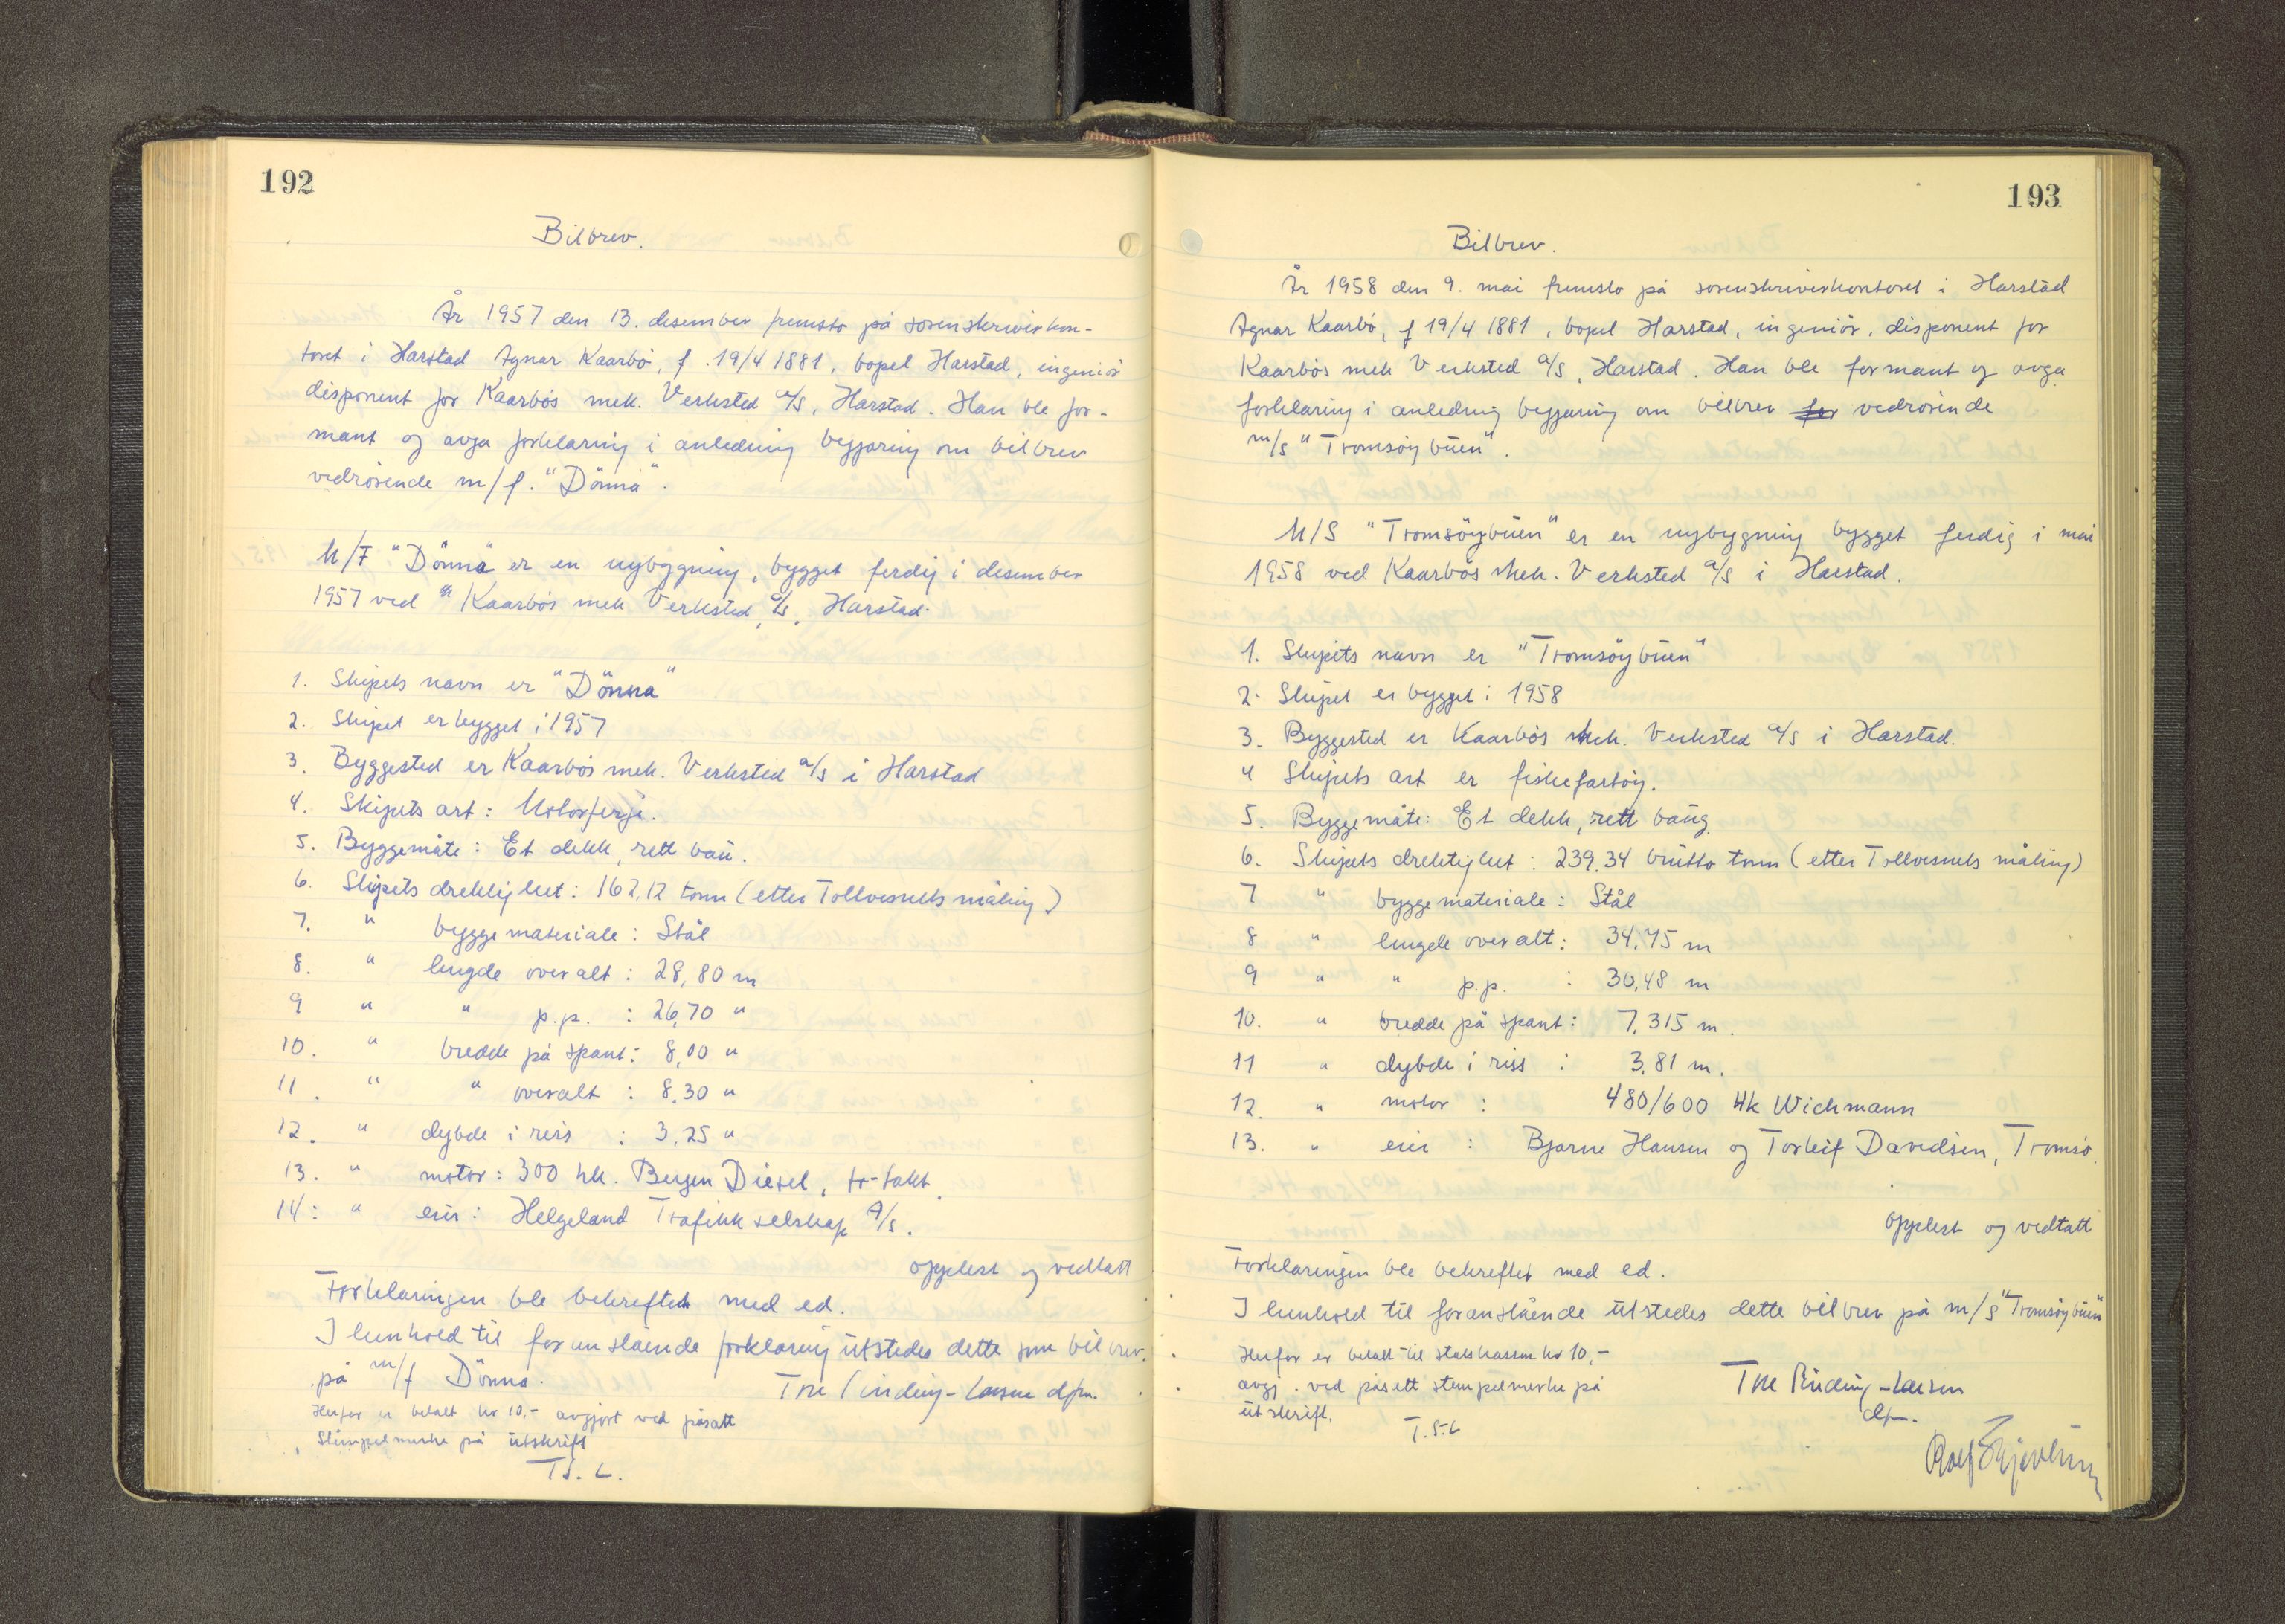 192
Bilbrev.
År 1957 den 13. desember fremsto på sorenskriverkon-
toret i Harstad Agnar Kaarbö, f. 19/4 1881, bopel Harstad, ingeniör
disponent for Kaarbös mek. Verksted a/s, Harstad. Han ble for-
mant og avga forklaring i anledning begjæring om bilbrev
vedrörende m/f. "Dönna".
M/F "Dönna" er en nybygning, bygget ferdig i desember
1957 ved Kaarbös mek Verksted a/s, Harstad.
1. Skipets navn er "Dönna"
2. Skipet er bygget i 1957
3. Byggested er Kaarbös mek. Verksted a/s i Harstad
4. Skipets art: Motorferje.
5. Byggemåte: Et dekk, rett bau.
6. Skipets drektighet: 162,12 tonn (etter Tollvesnets måling)
7. " byggemateriale: Stål
8. " lengde over alt: 28,80 m
9 " " p.p. : 26,70 "
10. " bredde på spant: 8,00 "
11. " " overalt : 8,30 "
12. " dybde i riss : 3,25 "
13. " motor: 300 hk. Bergen Diesel, to-takt.
14: " eier: Helgeland Trafikkselskap A/s.
opplest og vedtatt
Forklaringen ble bekreftet med ed.
I henhold til foranstående forklaring utstedes dette som bilbrev.
på m/f Dönna.
Tore Sinding-Larsen dfm.
Herfor er betalt kr 10,- avgjort ved påsatt
Stempelmerke på utskrift
T.S.L.
193
Bilbrev.
År 1958 den 9. mai fremsto på sorenskriverkontoret i Harstad
Agnar Kaarbö, f 19/4 1881, bopel Harstad, ingeniör, disponent for
Kaarbös mek Verksted a/s, Harstad. Han ble formant og avga
forklaring i anledning begjæring om bilbrev for vedrörende
m/s "Tromsöybuen".
M/S "Tromsöybuen" er en nybygning bygget ferdig i mai
1958 ved Kaarbös Mek. Verksted a/s i Harstad.
1. Skipets navn er "Tromsöybuen"
2. Skipet er bygget i 1958
3. Byggested er Kaarbös Mek. Verksted a/s i Harstad.
4 Skipets art er fiskefartöy.
5. Byggemåte: Et dekk, rett baug.
6. Skipets drektighet: 239,34 brutto tonn (etter Tollvesnets måling)
7 " byggemateriale: Stål
8 " lengde over alt: 34,75 m
9 " " p.p. : 30,48 m
10. " bredde på spant: 7,315 m.
11 " dybde i riss : 3,81 m.
12. " motor : 480/600 Hk Wichmann
13. " eier : Bjarne Hansen og Torleif Davidsen, Tromsö.
opplest og vedtatt
Forklaringen ble bekreftet med ed.
I henhold til foranstående utstedes dette bilbrev på m/s "Tromsöybuen"
Herfor er betalt til statskassen kr 10,-
avgj. ved påsatt stempelmerke på
utskrift.
T.S.L
Tore Sinding-Larsen
dfm.